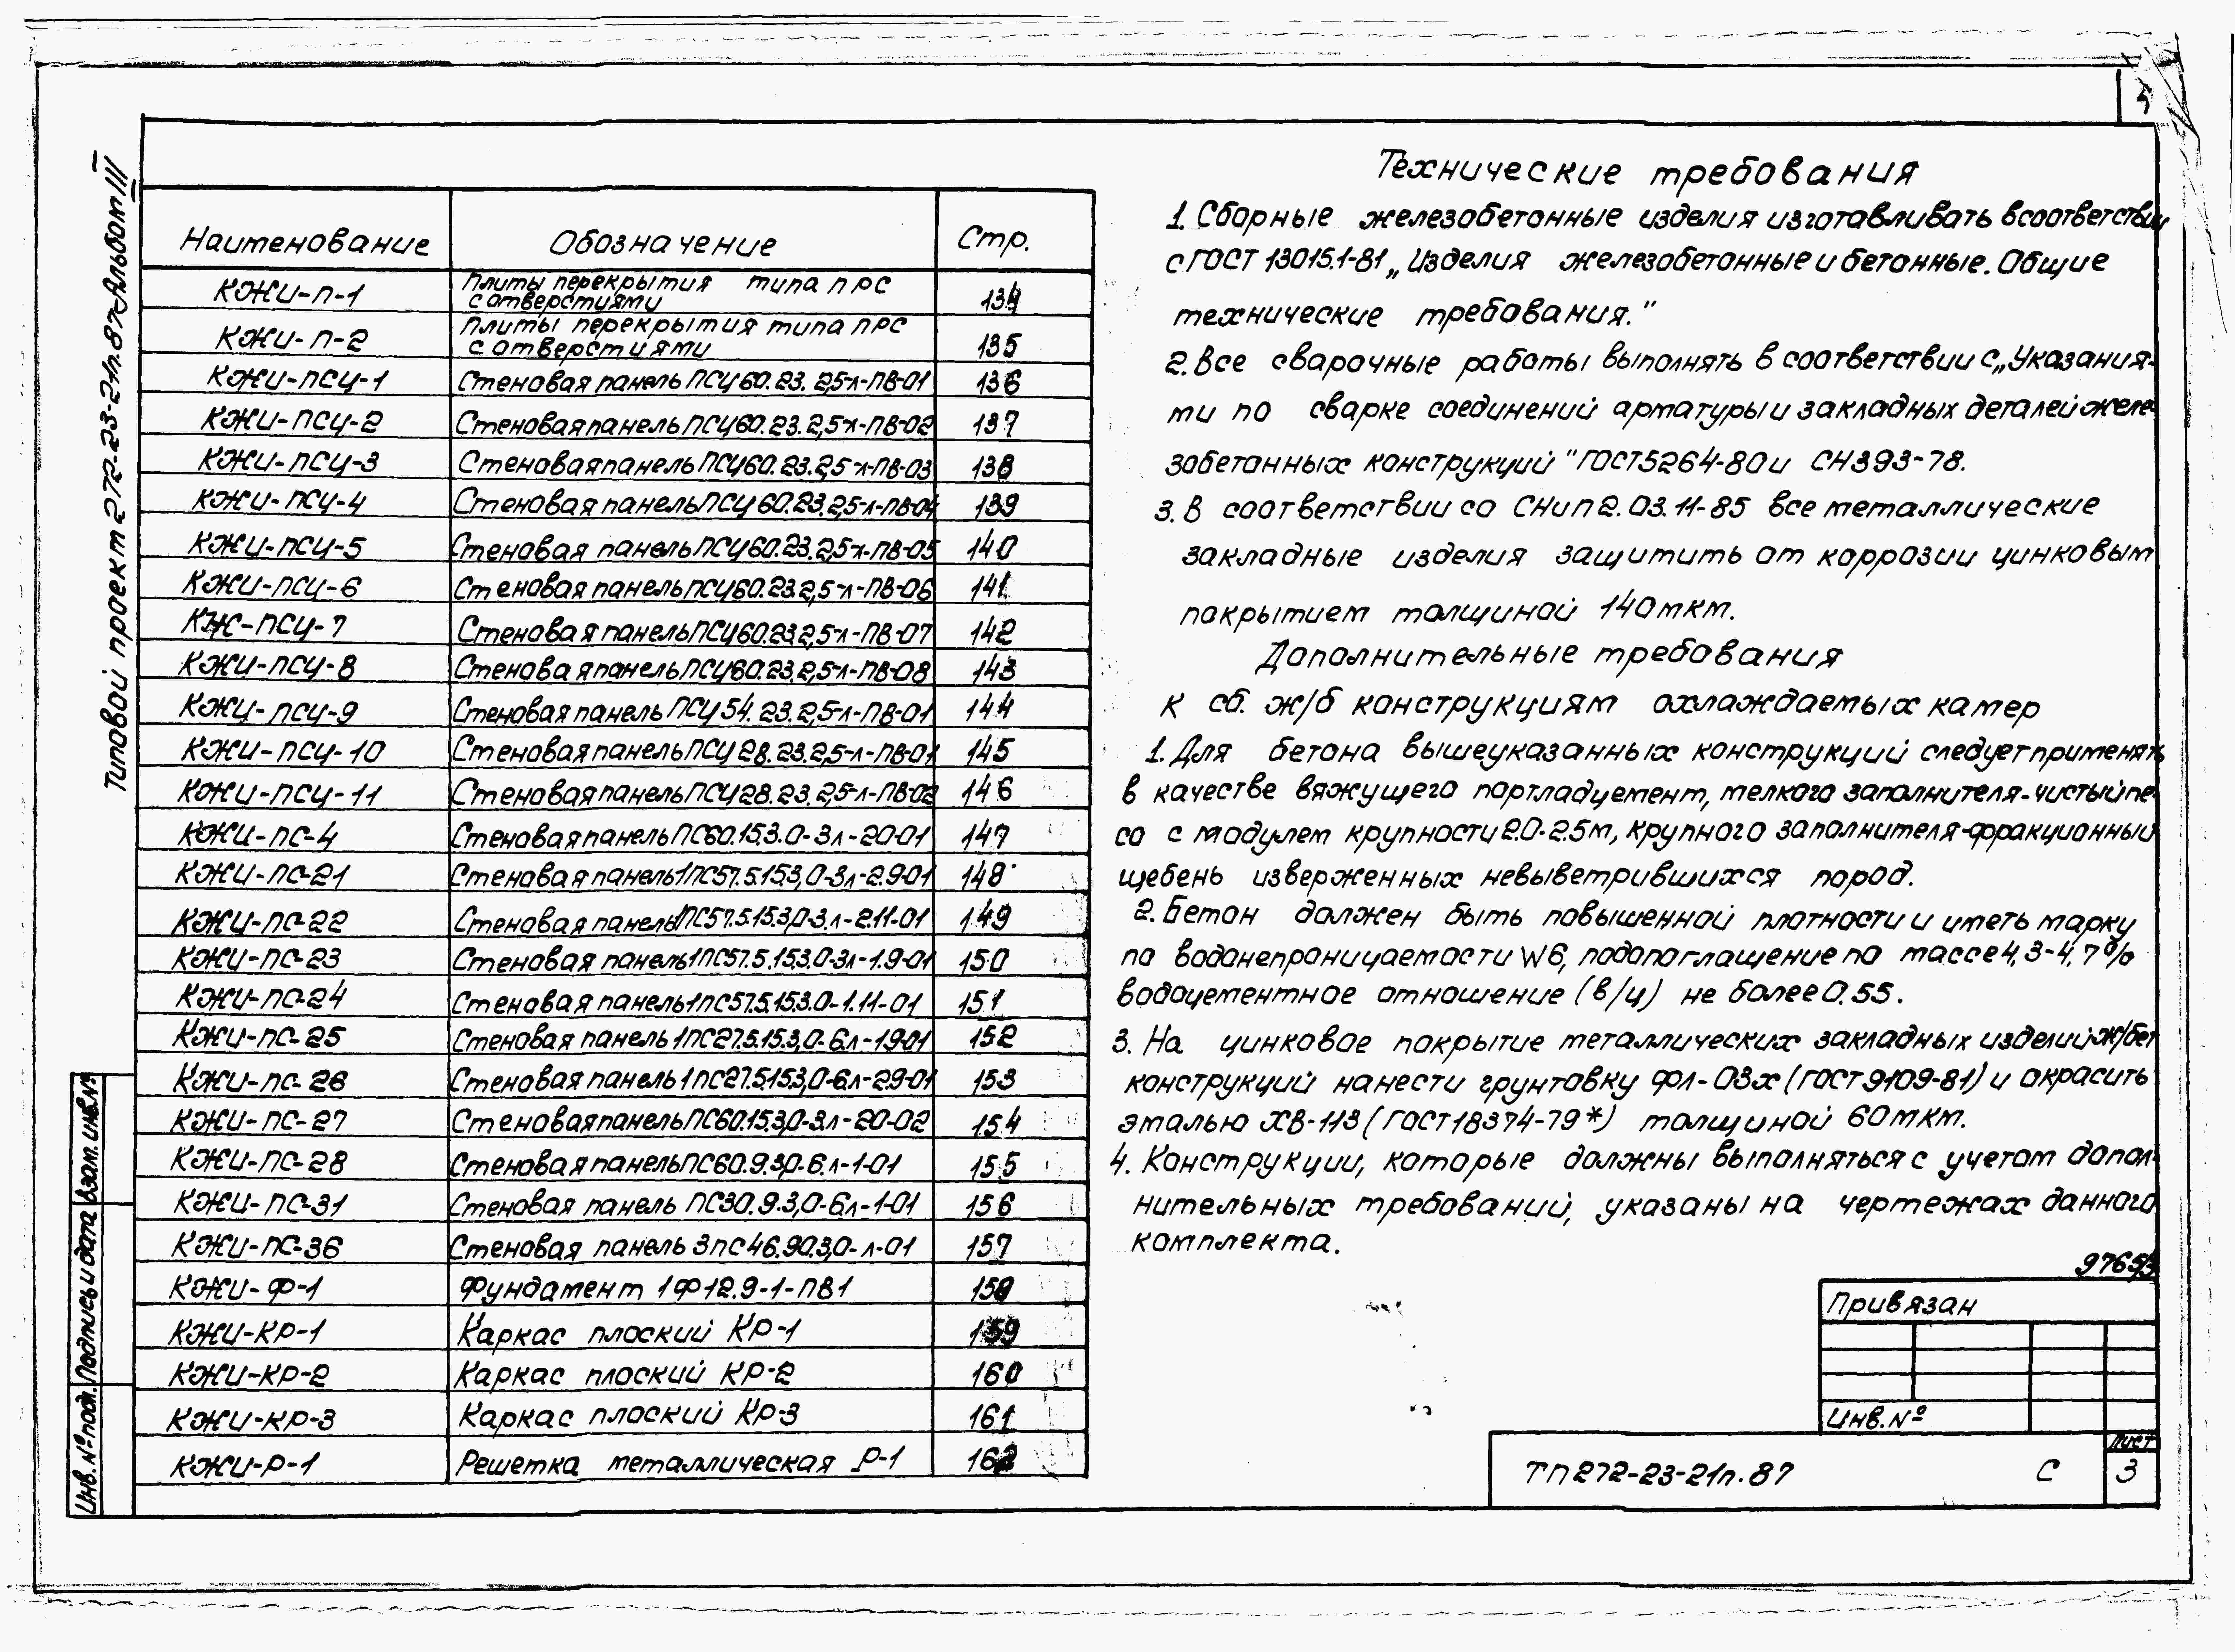 5
Типовой проект 272-23-21п.87 Альбом III
Наименование Обозначение Стр.
КЖИ-П-1 Плиты перекрытия типа ПРС с отверстиями 134
КЖИ-П-2 Плиты перекрытия типа ПРС с отверстиями 135
КЖИ-ПСЦ-1 Стеновая панель ПСЦ 60.23.2,5-л-ПВ-01 136
КЖИ-ПСЦ-2 Стеновая панель ПСЦ 60.23.2,5-л-ПВ-02 137
КЖИ-ПСЦ-3 Стеновая панель ПСЦ 60.23.2,5-л-ПВ-03 138
КЖИ-ПСЦ-4 Стеновая панель ПСЦ 60.23.2,5-л-ПВ-04 139
КЖИ-ПСЦ-5 Стеновая панель ПСЦ 60.23.2,5-л-ПВ-05 140
КЖИ-ПСЦ-6 Стеновая панель ПСЦ 60.23.2,5-л-ПВ-06 141
КЖ-ПСЦ-7 Стеновая панель ПСЦ 60.23.2,5-л-ПВ-07 142
КЖИ-ПСЦ-8 Стеновая панель ПСЦ 60.23.2,5-л-ПВ-08 143
КЖИ-ПСЦ-9 Стеновая панель ПСЦ 54.23.2,5-л-ПВ-01 144
КЖИ-ПСЦ-10 Стеновая панель ПСЦ 28.23.2,5-л-ПВ-01 145
КЖИ-ПСЦ-11 Стеновая панель ПСЦ 28.23.2,5-л-ПВ-02 146
КЖИ-ПС-4 Стеновая панель ПС60.15.3.0-3л-20-01 147
КЖИ-ПС-21 Стеновая панель 1ПС57.5.15.3,0-3л-2.9-01 148
КЖИ-ПС-22 Стеновая панель 1ПС57.5.15.3,0-3.л-2.11-01 149
КЖИ-ПС-23 Стеновая панель 1ПС57.5.15.3.0-3л-1.9-01 150
КЖИ-ПС-24 Стеновая панель 1ПС57.5.15.3.0-1.11-01 151
КЖИ-ПС-25 Стеновая панель 1ПС27.5.15.3,0-6.л-1.9-01 152
КЖИ-ПС-26 Стеновая панель 1ПС27.5.15.3,0-6.л-2.9-01 153
КЖИ-ПС-27 Стеновая панель ПС60.15.3,0-3.л-20-02 154
КЖИ-ПС-28 Стеновая панель ПС60.9.3,0-6.л-1-01 155
КЖИ-ПС-31 Стеновая панель ПС30.9.3,0-6л-1-01 156
КЖИ-ПС-36 Стеновая панель 3ПС46.90.3,0-л-01 157
КЖИ-Ф-1 Фундамент 1Ф12.9-1-ПВ1 158
КЖИ-КР-1 Каркас плоский КР-1 159
КЖИ-КР-2 Каркас плоский КР-2 160
КЖИ-КР-3 Каркас плоский КР-3 161
КЖИ-Р-1 Решетка металлическая Р-1 162
Технические требования
1. Сборные железобетонные изделия изготавливать в соответствии
с ГОСТ 13015.1-81 „Изделия железобетонные и бетонные. Общие
технические требования."
2. Все сварочные работы выполнять в соответствии с „Указания-
ми по сварке соединений арматуры и закладных деталей желе-
зобетонных конструкций" ГОСТ 5264-80 и СН393-78.
3. В соответствии со СНиП 2.03.11-85 все металлические
закладные изделия защитить от коррозии цинковым
покрытием толщиной 140 мкм.
Дополнительные требования
к сб. ж/б конструкциям охлаждаемых камер
1. Для бетона вышеуказанных конструкций следует применять
в качестве вяжущего портладцемент, мелкого заполнителя-чистый пе-
со с модулем крупности 2.0-2.5м, крупного заполнителя-фракционный
щебень изверженных невыветрившихся пород.
2. Бетон должен быть повышенной плотности и иметь марку
по водонепроницаемости W6, подопоглащение по массе 4,3-4,7%
водоцементное отношение (в/ц) не более 0.55.
3. На цинковое покрытие металлических закладных изделий ж/бет
конструкций нанести грунтовку ФЛ-03х (ГОСТ 9109-81) и окрасить
эмалью ХВ-113 (ГОСТ 18374-79*) толщиной 60 мкм.
4. Конструкции, которые должны выполняться с учетом допол-
нительных требований, указаны на чертежах данного
комплекта.
9765/3
Привязан
Инв. №
ТП 272-23-21п.87 С
Лист
3
Инв. № подл. Подпись и дата Взам. инв. №